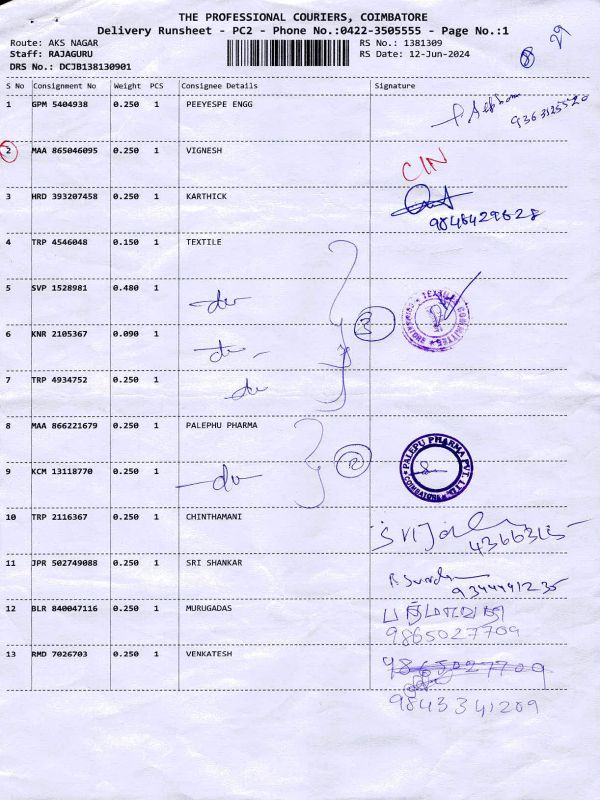 THE PROFESSIONAL COURIERS, COIMBATORE
Delivery Runsheet - PC2 - Phone No.:0422-3505555 - Page No.:1
Route: AKS NAGAR RS No.: 1381309
Staff: RAJAGURU RS Date: 12-Jun-2024
DRS No.: DCJB138130901
8 29
S No Consignment No Weight PCS Consignee Details Signature
1 GPM 5404938 0.250 1 PEEYESPE ENGG
9363125520
2 MAA 865046095 0.250 1 VIGNESH CIN
3 HRD 393207458 0.250 1 KARTHICK
9848429628
4 TRP 4546048 0.150 1 TEXTILE
5 SVP 1528981 0.480 1 do
3 TEXTILE COMMITTEE COIMBATORE
6 KNR 2105367 0.090 1 do
7 TRP 4934752 0.250 1 do
8 MAA 866221679 0.250 1 PALEPHU PHARMA
2 PALEPU PHARMA PVT. LTD COIMBATORE
9 KCM 13118770 0.250 1 do
10 TRP 2116367 0.250 1 CHINTHAMANI
4366315
11 JPR 502749088 0.250 1 SRI SHANKAR
9344441235
12 BLR 840047116 0.250 1 MURUGADAS
9865027709
13 RMD 7026703 0.250 1 VENKATESH 9865027709
9843341209